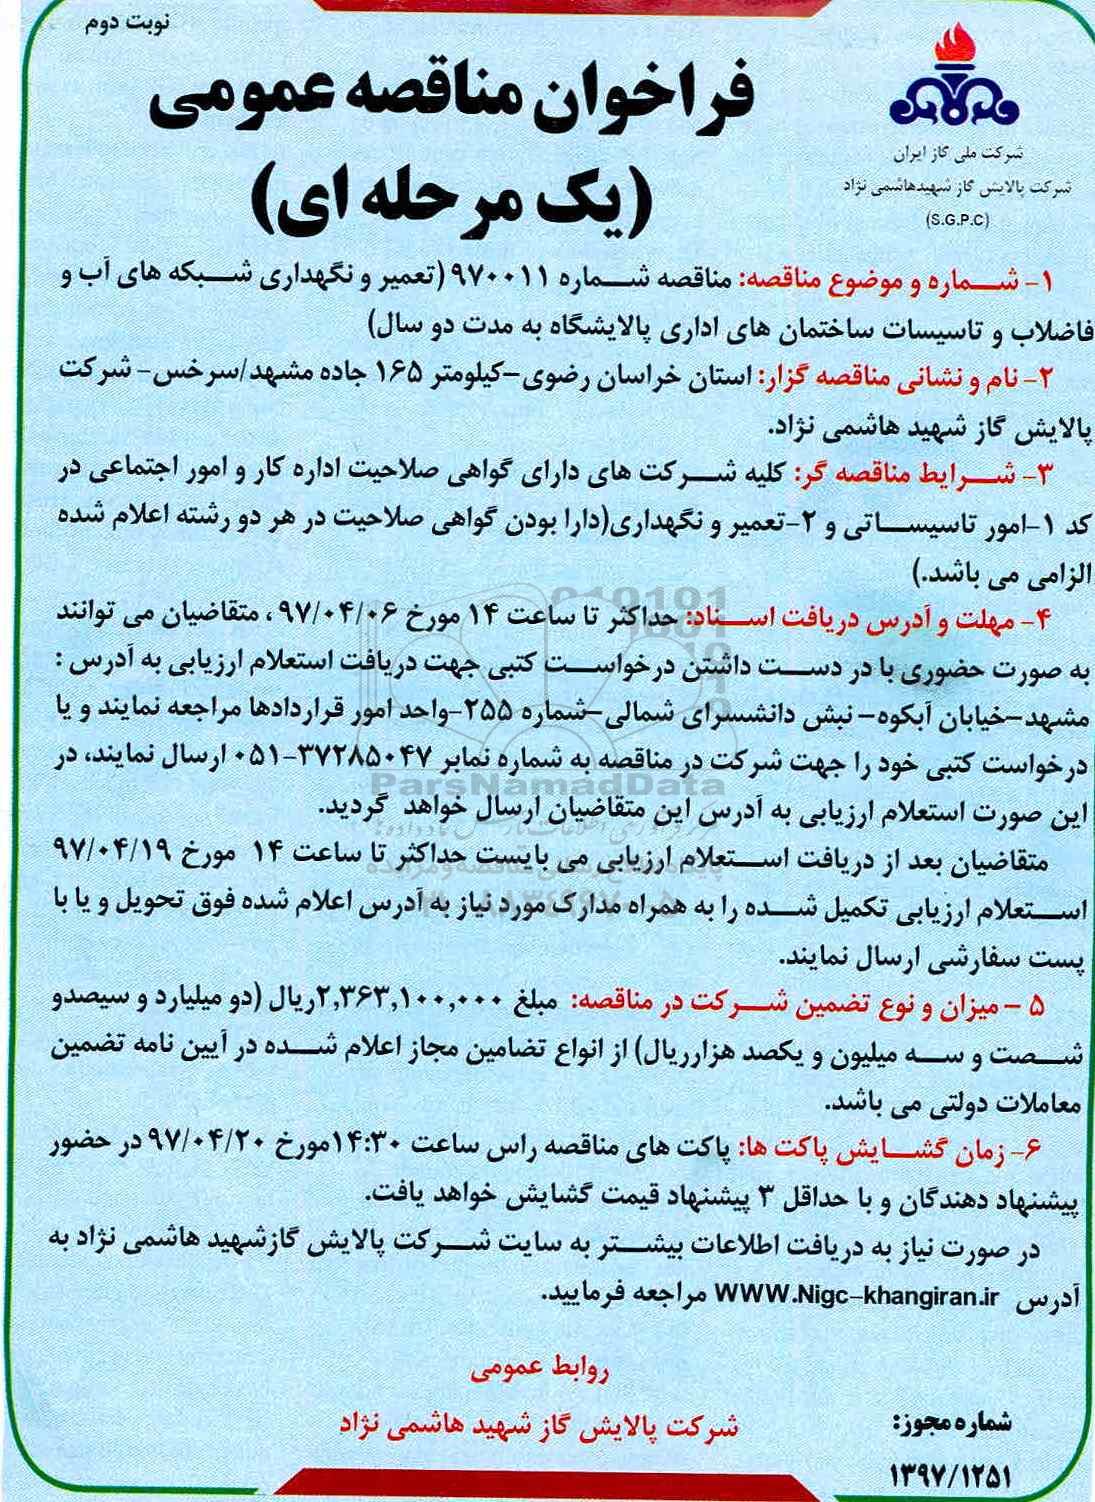 نوبت دوم
فراخوان مناقصه عمومی
(یک مرحله ای)
شرکت ملی گاز ایران
شرکت پالایش گاز شهیدهاشمی نژاد
(S.G.P.C)
۱- شماره و موضوع مناقصه: مناقصه شماره ۹۷۰۰۱۱ (تعمیر و نگهداری شبکه های آب و
فاضلاب و تاسیسات ساختمان های اداری پالایشگاه به مدت دو سال)
۲- نام و نشانی مناقصه گزار: استان خراسان رضوی-کیلومتر ۱۶۵ جاده مشهد/سرخس- شرکت
پالایش گاز شهید هاشمی نژاد.
۳- شرایط مناقصه گر: کلیه شرکت های دارای گواهی صلاحیت اداره کار و امور اجتماعی در
کد ۱-امور تاسیساتی و ۲-تعمیر و نگهداری(دارا بودن گواهی صلاحیت در هر دو رشته اعلام شده
الزامی می باشد.)
۴- مهلت و آدرس دریافت اسناد: حداکثر تا ساعت ۱۴ مورخ ۹۷/۰۴/۰۶ ، متقاضیان می توانند
به صورت حضوری با در دست داشتن درخواست کتبی جهت دریافت استعلام ارزیابی به آدرس :
مشهد-خیابان آبکوه- نبش دانشسرای شمالی-شماره ۲۵۵-واحد امور قراردادها مراجعه نمایند و یا
درخواست کتبی خود را جهت شرکت در مناقصه به شماره نمابر ۳۷۲۸۵۰۴۷-۰۵۱ ارسال نمایند، در
ParsNamadData
این صورت استعلام ارزیابی به آدرس این متقاضیان ارسال خواهد گردید.
متقاضیان بعد از دریافت استعلام ارزیابی می بایست حداکثر تا ساعت ۱۴ مورخ ۹۷/۰۴/۱۹
استعلام ارزیابی تکمیل شده را به همراه مدارک مورد نیاز به آدرس اعلام شده فوق تحویل و یا با
پست سفارشی ارسال نمایند.
۵ - میزان و نوع تضمین شرکت در مناقصه: مبلغ ۲,۳۶۳,۱۰۰,۰۰۰ریال (دو میلیارد و سیصدو
شصت و سه میلیون و یکصد هزارریال) از انواع تضامین مجاز اعلام شده در آیین نامه تضمین
معاملات دولتی می باشد.
۶- زمان گشایش پاکت ها: پاکت های مناقصه راس ساعت ۱۴:۳۰مورخ ۹۷/۰۴/۲۰ در حضور
پیشنهاد دهندگان و با حداقل ۳ پیشنهاد قیمت گشایش خواهد یافت.
در صورت نیاز به دریافت اطلاعات بیشتر به سایت شرکت پالایش گازشهید هاشمی نژاد به
آدرس WWW.Nigc-khangiran.ir مراجعه فرمایید.
روابط عمومی
شرکت پالایش گاز شهید هاشمی نژاد
شماره مجوز:
۱۳۹۷/۱۲۵۱